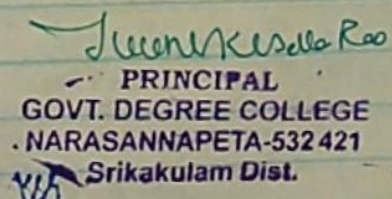 Rao
PRINCIPAL
GOVT. DEGREE COLLEGE
NARASANNAPETA-532 421
Srikakulam Dist.